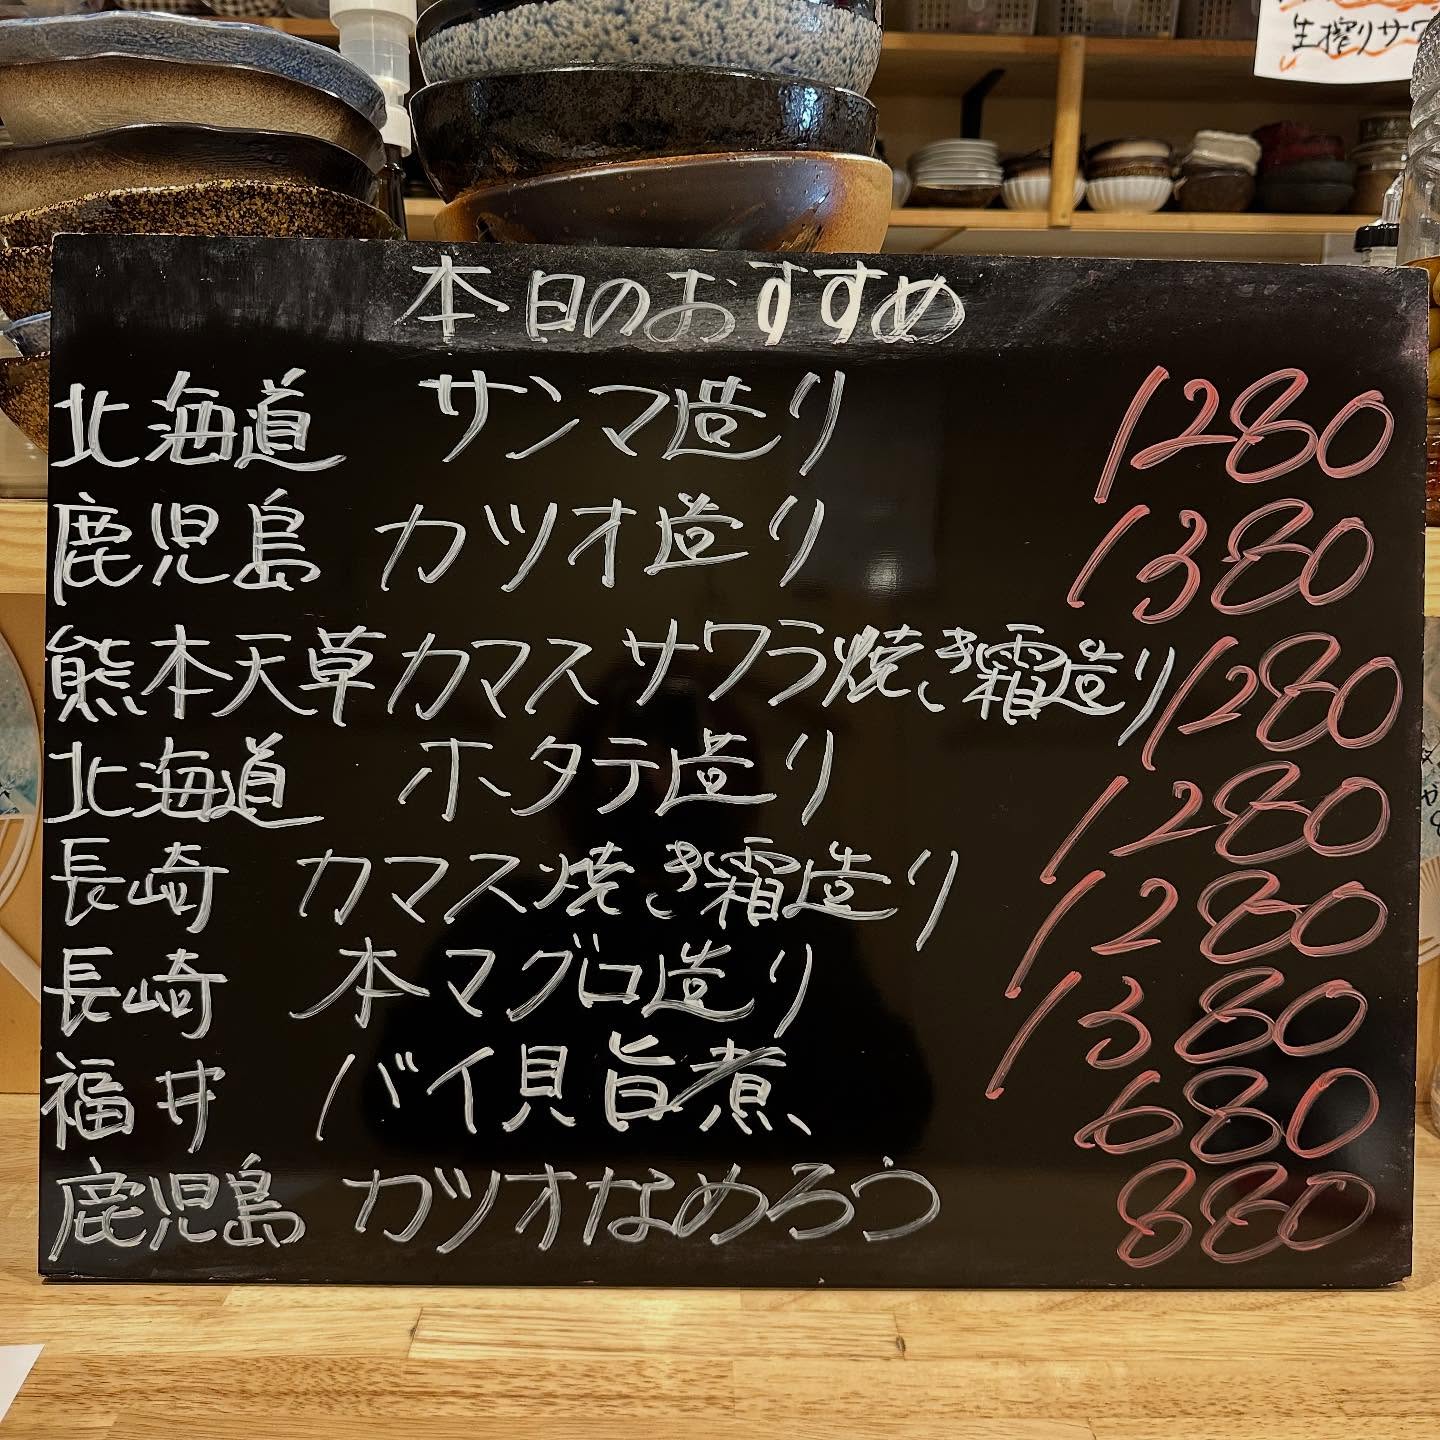 生搾りサワ
本日のおすすめ
北海道 サンマ造り 1280
鹿児島 カツオ造り 1380
熊本天草カマスサワラ焼き霜造り 1280
北海道 ホタテ造り 1280
長崎 カマス焼き霜造り 1280
長崎 本マグロ造り 1380
福井 バイ貝旨煮 680
鹿児島 カツオなめろう 880